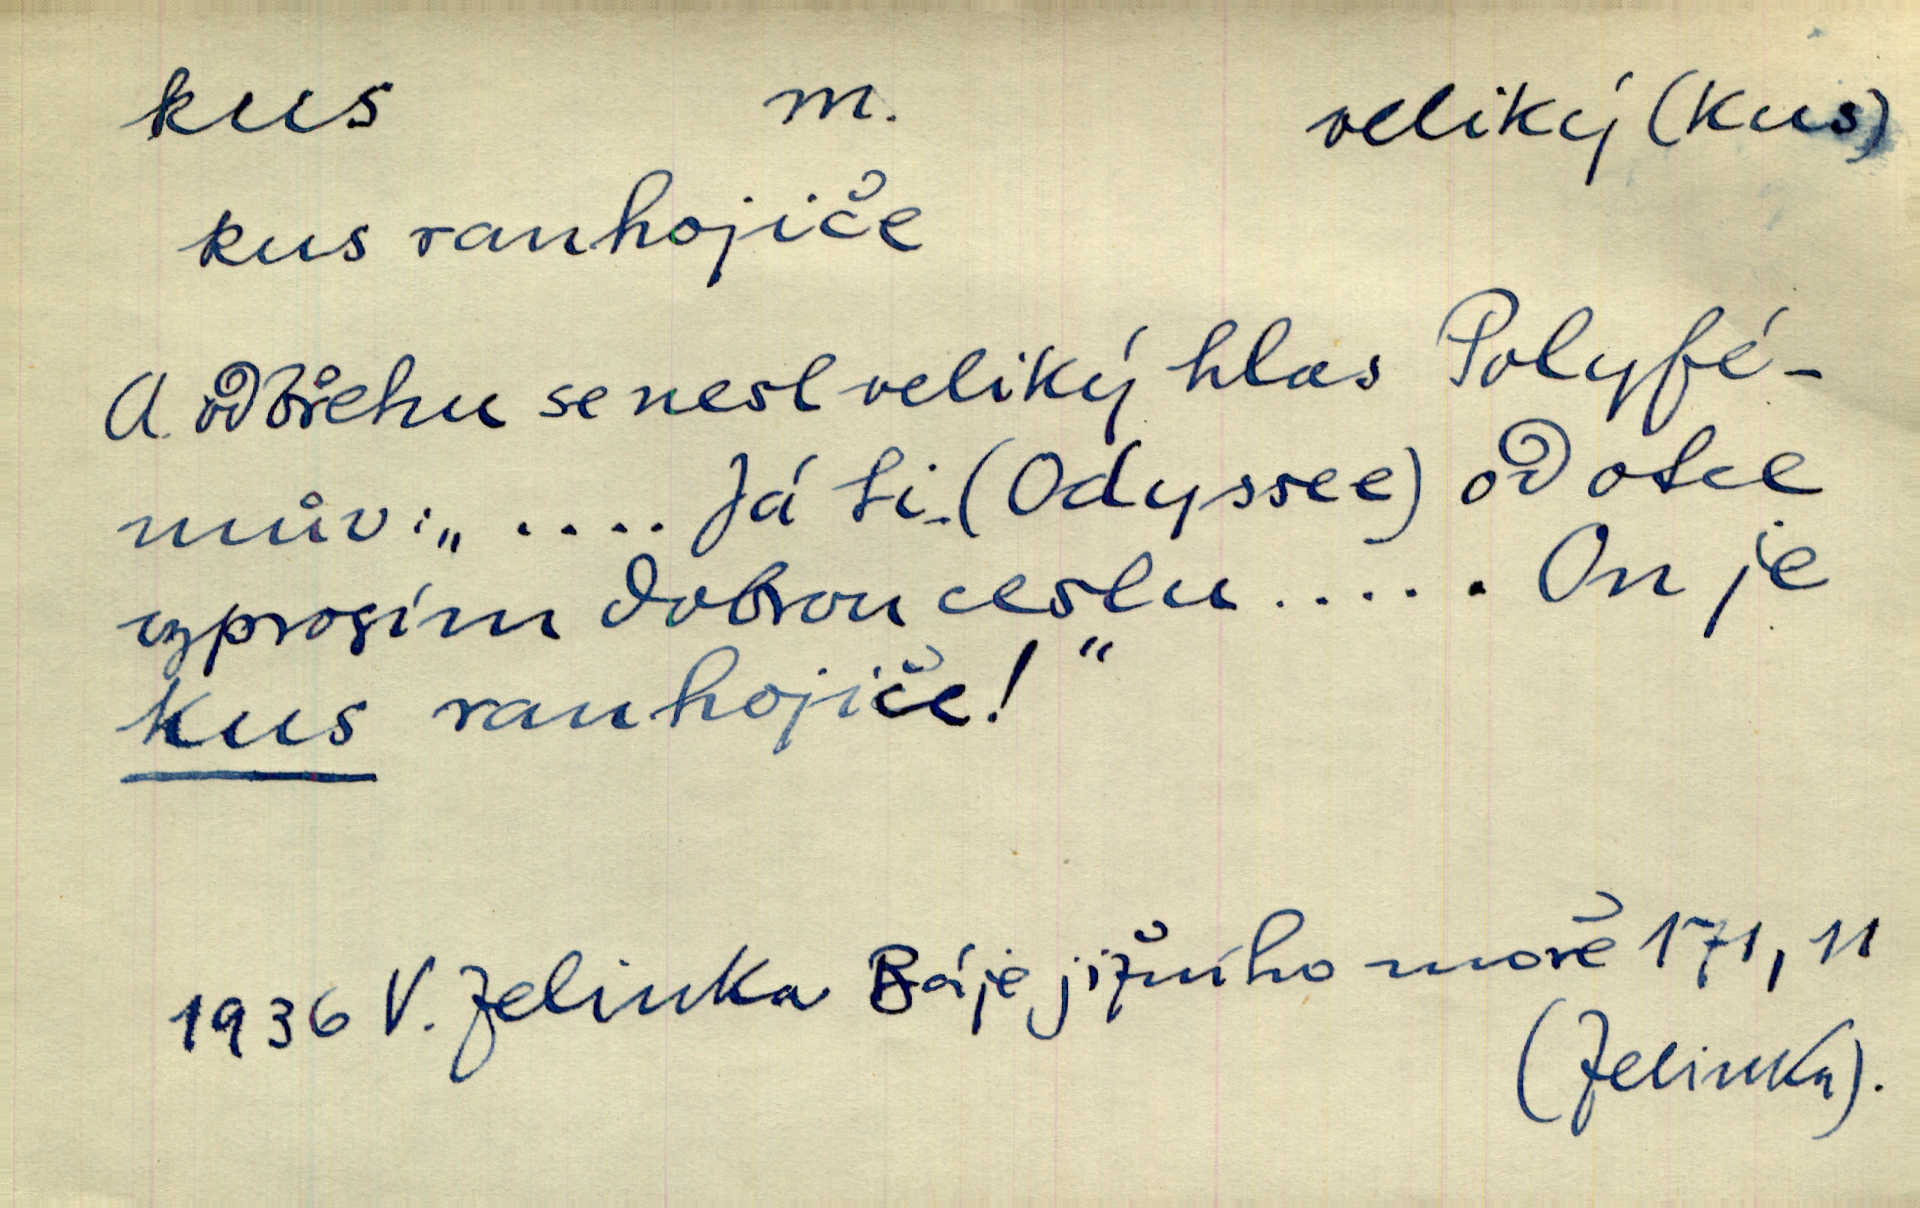 kus m. veliký (kus)
kus ranhojiče
A od břehu se nesl veliký hlas Polyfé-
mův: „ .... Já ti (Odyssee) od otce
vyprosím dobrou cestu ..... On je
kus ranhojiče!“
1936 V. Jelinka Báje jižního moře 171, 11
(Jelinka).